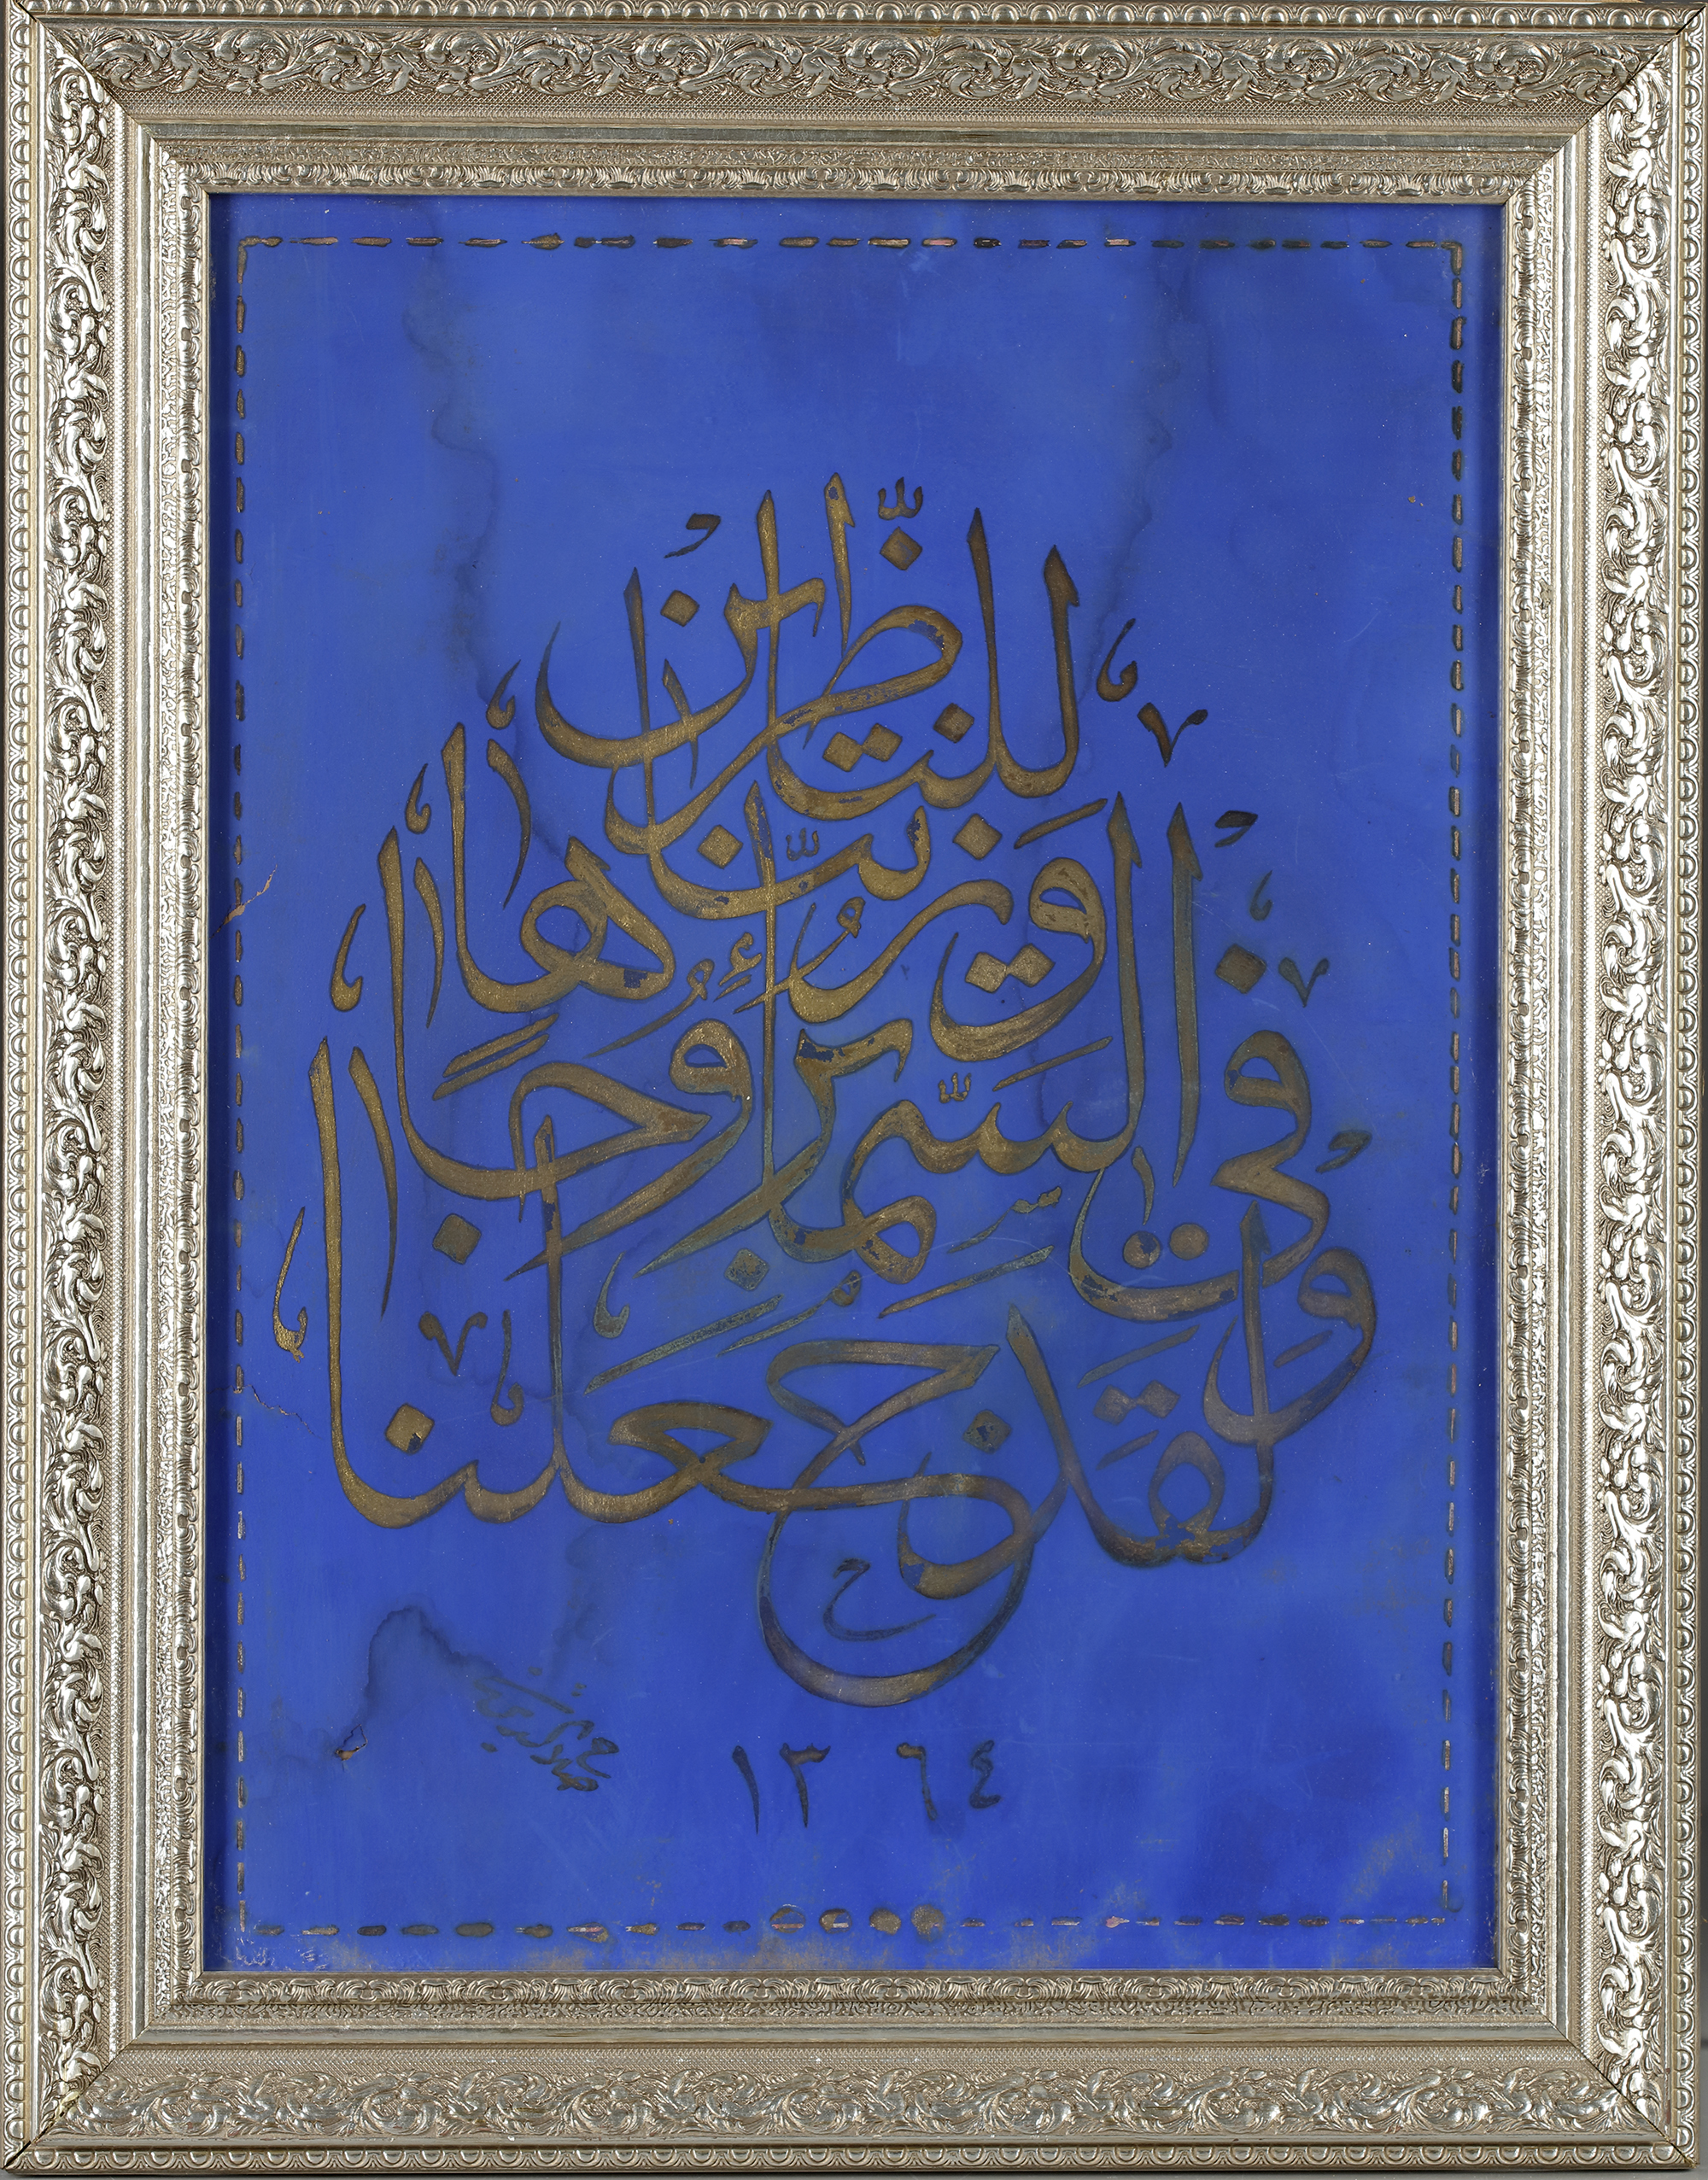 ولقد جعلنا
في السماء بروجا
وزيناها
للناظرين
١٣٦٤